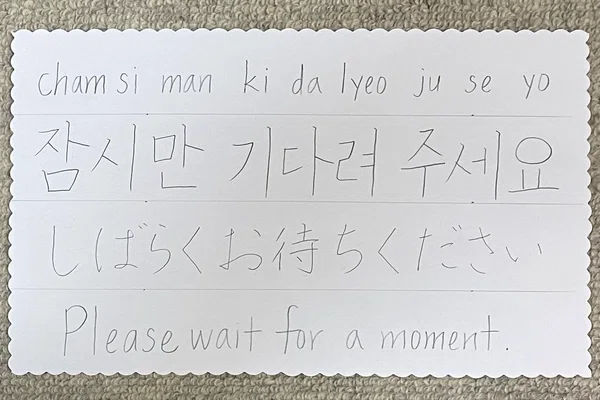 cham si man ki da lyeo ju se yo
잠시만 기다려 주세요
しばらくお待ちください
Please wait for a moment.